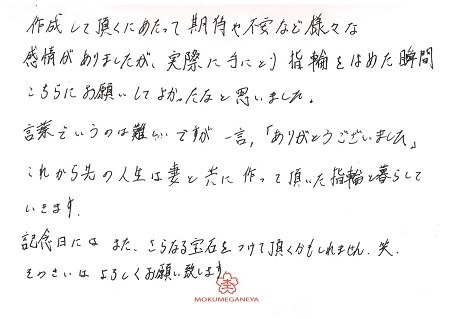 作成して頂くにあたって期待や不安など様々な
感情がありましたが、実際に手にとり指輪をはめた瞬間
こちらにお願いしてよかったなと思いました。
言葉でいうのは難しいですが一言、「ありがとうございました」
これから先の人生は妻と共に作って頂いた指輪と暮らして
いきます。
記念日には また、さらなる宝石をつけて頂くかもしれません。笑。
そのさいは よろしくお願い致します
MOKUMEGANEYA